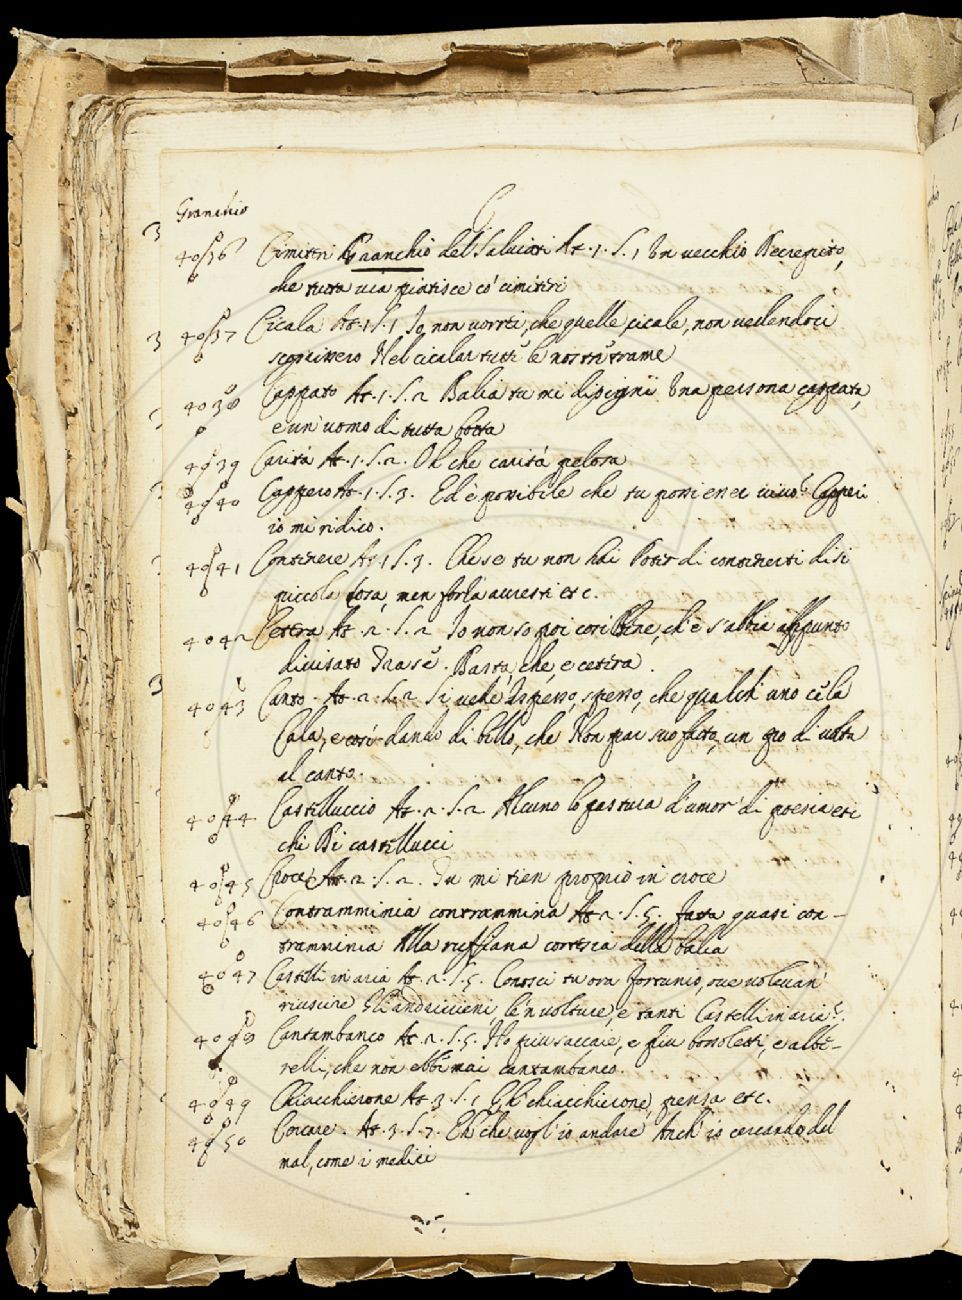 Granchio
C
4036 Cimitri Granchio del Salviati At. 1. S. 1 Un vecchio Decrepito,
che tutta via piatisce co' cimitiri
3 4037 Cicala At. 1. S. 1 Io non vorrei, che quelle cicale, non vedendoci
scoprissero Nel cicalar tutte le nostre trame
4038 Cappato At. 1. S. 2 Balia tu mi dipigni Una persona cappata,
e un' uomo di tutta botta
4039 Carità At. 1. S. 2. Oh che carità pelosa
4040 Cappero At. 1. S. 3. Ed è possibile che tu possi esser vivo? Capperi
io mi ridico.
4041 Continere At. 1 S. 3. Che se tu non hai Poter di contenerti di si
piccola cosa, men forza avresti etc.
4042 Cetera At. 2. S. 2 Io non so poi così Bene, ch'e s'abbia appunto
divisato Tra se. Basta, che, e cetera.
3 4043 Canto. At. 2. S. 2 Si vede spesso, spesso, che qualch' uno ce la
Cala, e così dando di bello, che Non par suo fatto, un pio di volta
al canto.
4044 Castelluccio At. 2. S. 2 Alcuno lo pastura d'amor di poesia etc
chi Di castellucci
4045 Croce At. 2. S. 2. Tu mi tien proprio in croce
4046 Contramminia contrammina At. 2. S. 5. fatta quasi con-
tramminia Alla ruffiana cortesia della balia
4047 Castelli in aria At. 2. S. 5. Conosci tu ora Fortunio, ove volevan
riuscire Gli andirivieni, le 'nvolture, e tanti Castelli in aria?
Cantambanco At. 2. S. 5. Ho piu saccaie, e piu bossoletti, e albe-
relli, che non ebbe mai cantambanco.
4049 Chiacchierone At. 3. S. 1 Eh chiacchierone, pensa etc.
4050 Cercare. At. 3. S. 7. Eh che vogl' io andare Anch' io cercando del
mal, come i medici